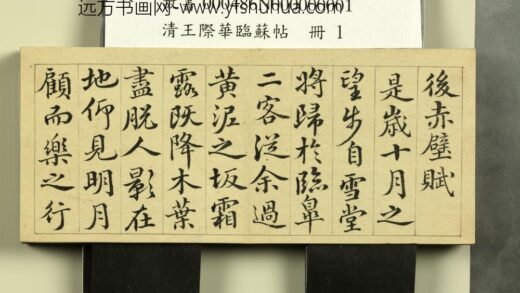 远方书画网-www.yfshuhua.com
清王際華臨蘇帖 冊 1
後赤壁賦
是歲十月之
望步自雪堂
將歸於臨皐
二客從余過
黃泥之坂霜
露既降木葉
盡脫人影在
地仰見明月
顧而樂之行